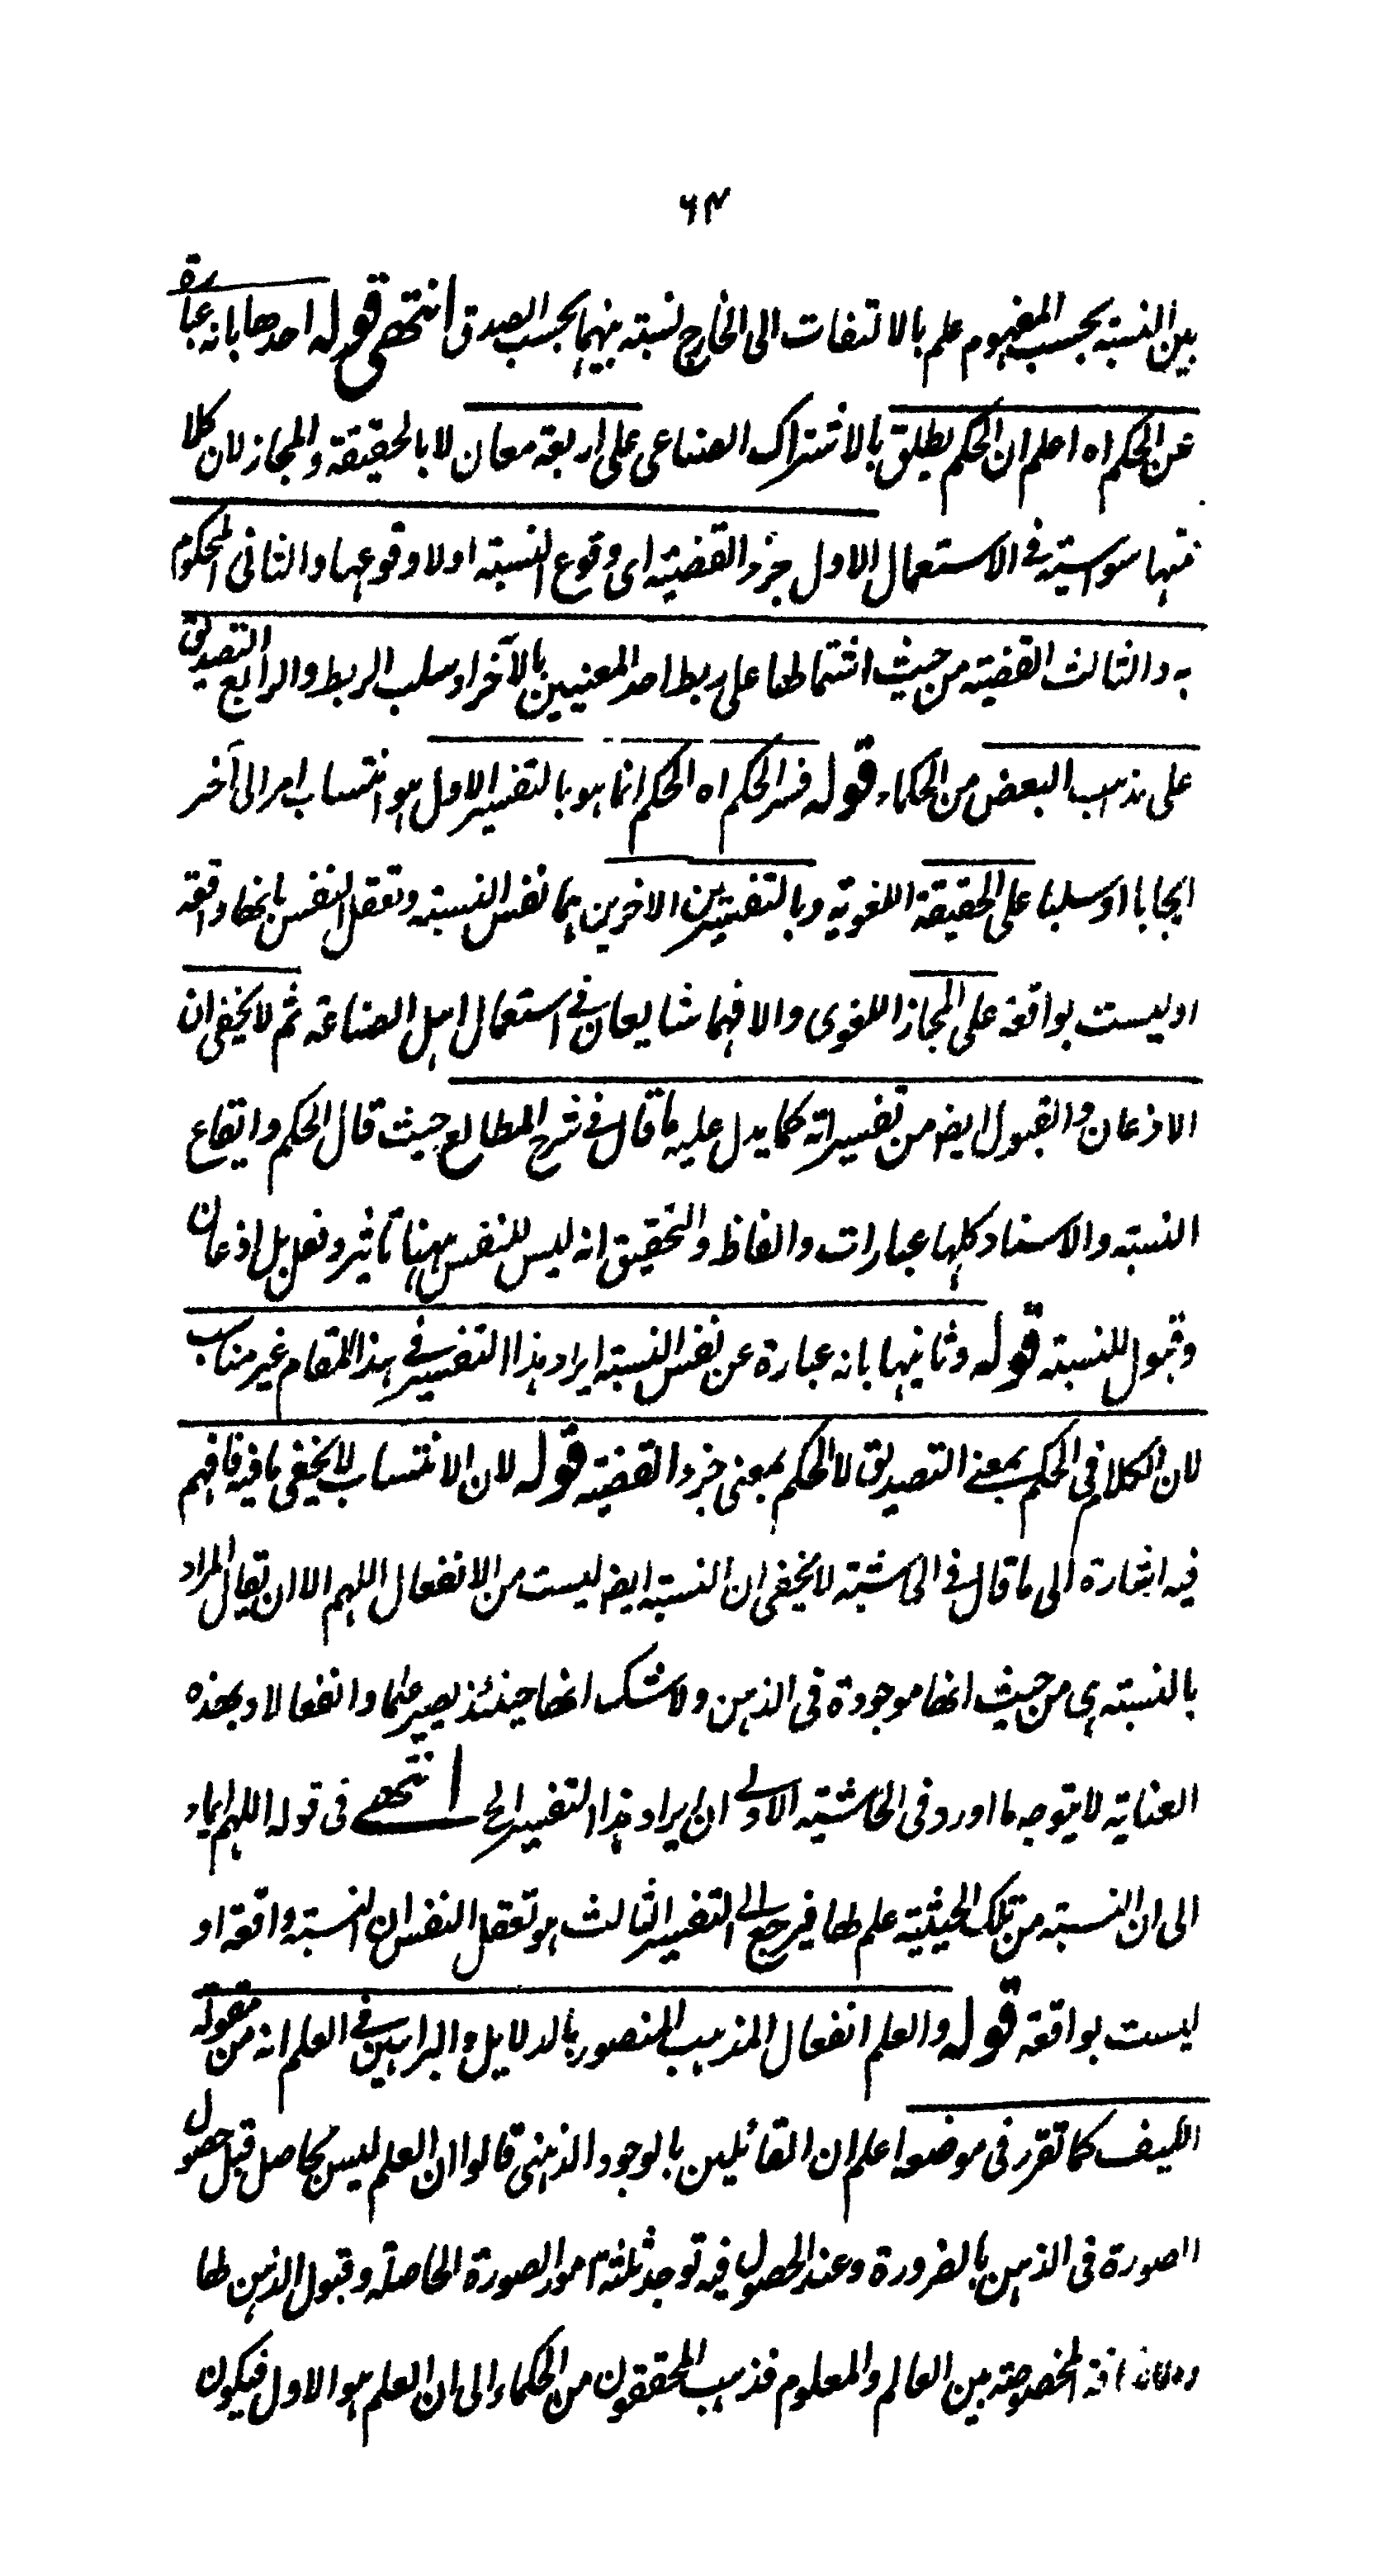 ٦٤
بين النسبته بحسب المفهوم علم بالالتفات الى الخارج نسبته بينهما بحسب الصدق انتهى قوله احدها بانه عبارة
عن الحكم اه اعلم ان الحكم يطلق بالاشتراك الصناعى على اربعة معان لا بالحقيقة والمجاز لان كلا
منها سواسية فى الاستعمال الاول جزء القضيته اى وقوع النسبته اولا وقوعها والثانى المحكوم
به والثالث القضيته من حيث اشتمالها على ربط احد المعنيين بالآخر او سلب الربط والرابع التصديق
على مذهب البعض من الحكماء قوله فسر الحكم اه الحكم انما هو بالتفسير الاول هو انتساب امر الى آخر
ايجابا او سلبا على الحقيقة اللغوية وبالتفسيرين الاخرين هما نفس النسبته وتعقل النفس بانها واقعة
او ليست بواقعة على المجاز اللغوى والا فهما شايعان فى استعمال اهل الصناعة ثم لا يخفى ان
الاذعان والقبول ايضا من تفسيراته كما يدل عليه ما قال فى شرح المطالع حيث قال الحكم وايقاع
النسبته والاسناد كلها عبارات والفاظ والتحقيق انه ليس للنفس ههنا تأثير وفعل بل اذعان
وقبول للنسبته قوله وثانيها بانه عبارة عن نفس النسبته ايراد هذا التفسير فى هذا المقام غير مناسب
لان الكلام فى الحكم بمعنى التصديق لا الحكم بمعنى جزء القضيته قوله لان الانتساب لا يخفى ما فيه فافهم
فيه اشارة الى ما قال فى الحاشية لا يخفى ان النسبته ايضا ليست من الانفعال اللهم الا ان يقال المراد
بالنسبته هى من حيث انها موجودة فى الذهن ولا شك انها حينئذ يصير علما وانفعالا وبهذه
العناية لا يتوجه ما اورد فى الحاشية الاولى ان ايراد هذا التفسير الخ انتهى فى قوله اللهم ايماء
الى ان النسبته من تلك الحيثية علم لها فيرجع الى التفسير الثالث هو تعقل النفس ان النسبته واقعة او
ليست بواقعة قوله والعلم انفعال المذهب المنصور بالدلايل والبراهين فى العلم انه من مقولة
الكيف كما تقرر فى موضعه اعلم ان القائلين بالوجود الذهنى قالوا ان العلم ليس بحاصل قبل حصول
الصورة فى الذهن بالضرورة وعند الحصول فيه توجد ثلثة امور الصورة الحاصلة وقبول الذهن لها
والاضافة المخصوصة بين العالم والمعلوم فذهب المحققون من الحكماء الى ان العلم هو الاول فيكون